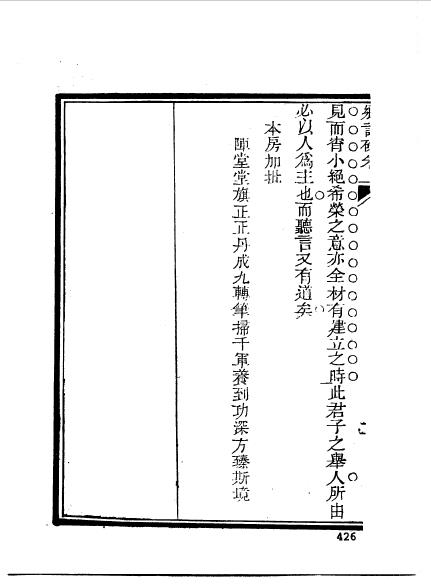 見而宵小絕希榮之意亦全材有建立之時此君子之舉人所由
必以人爲主也而聽言又有道矣
本房加批
陣堂堂旗正正丹成九轉筆掃千軍養到功深方臻斯境
426